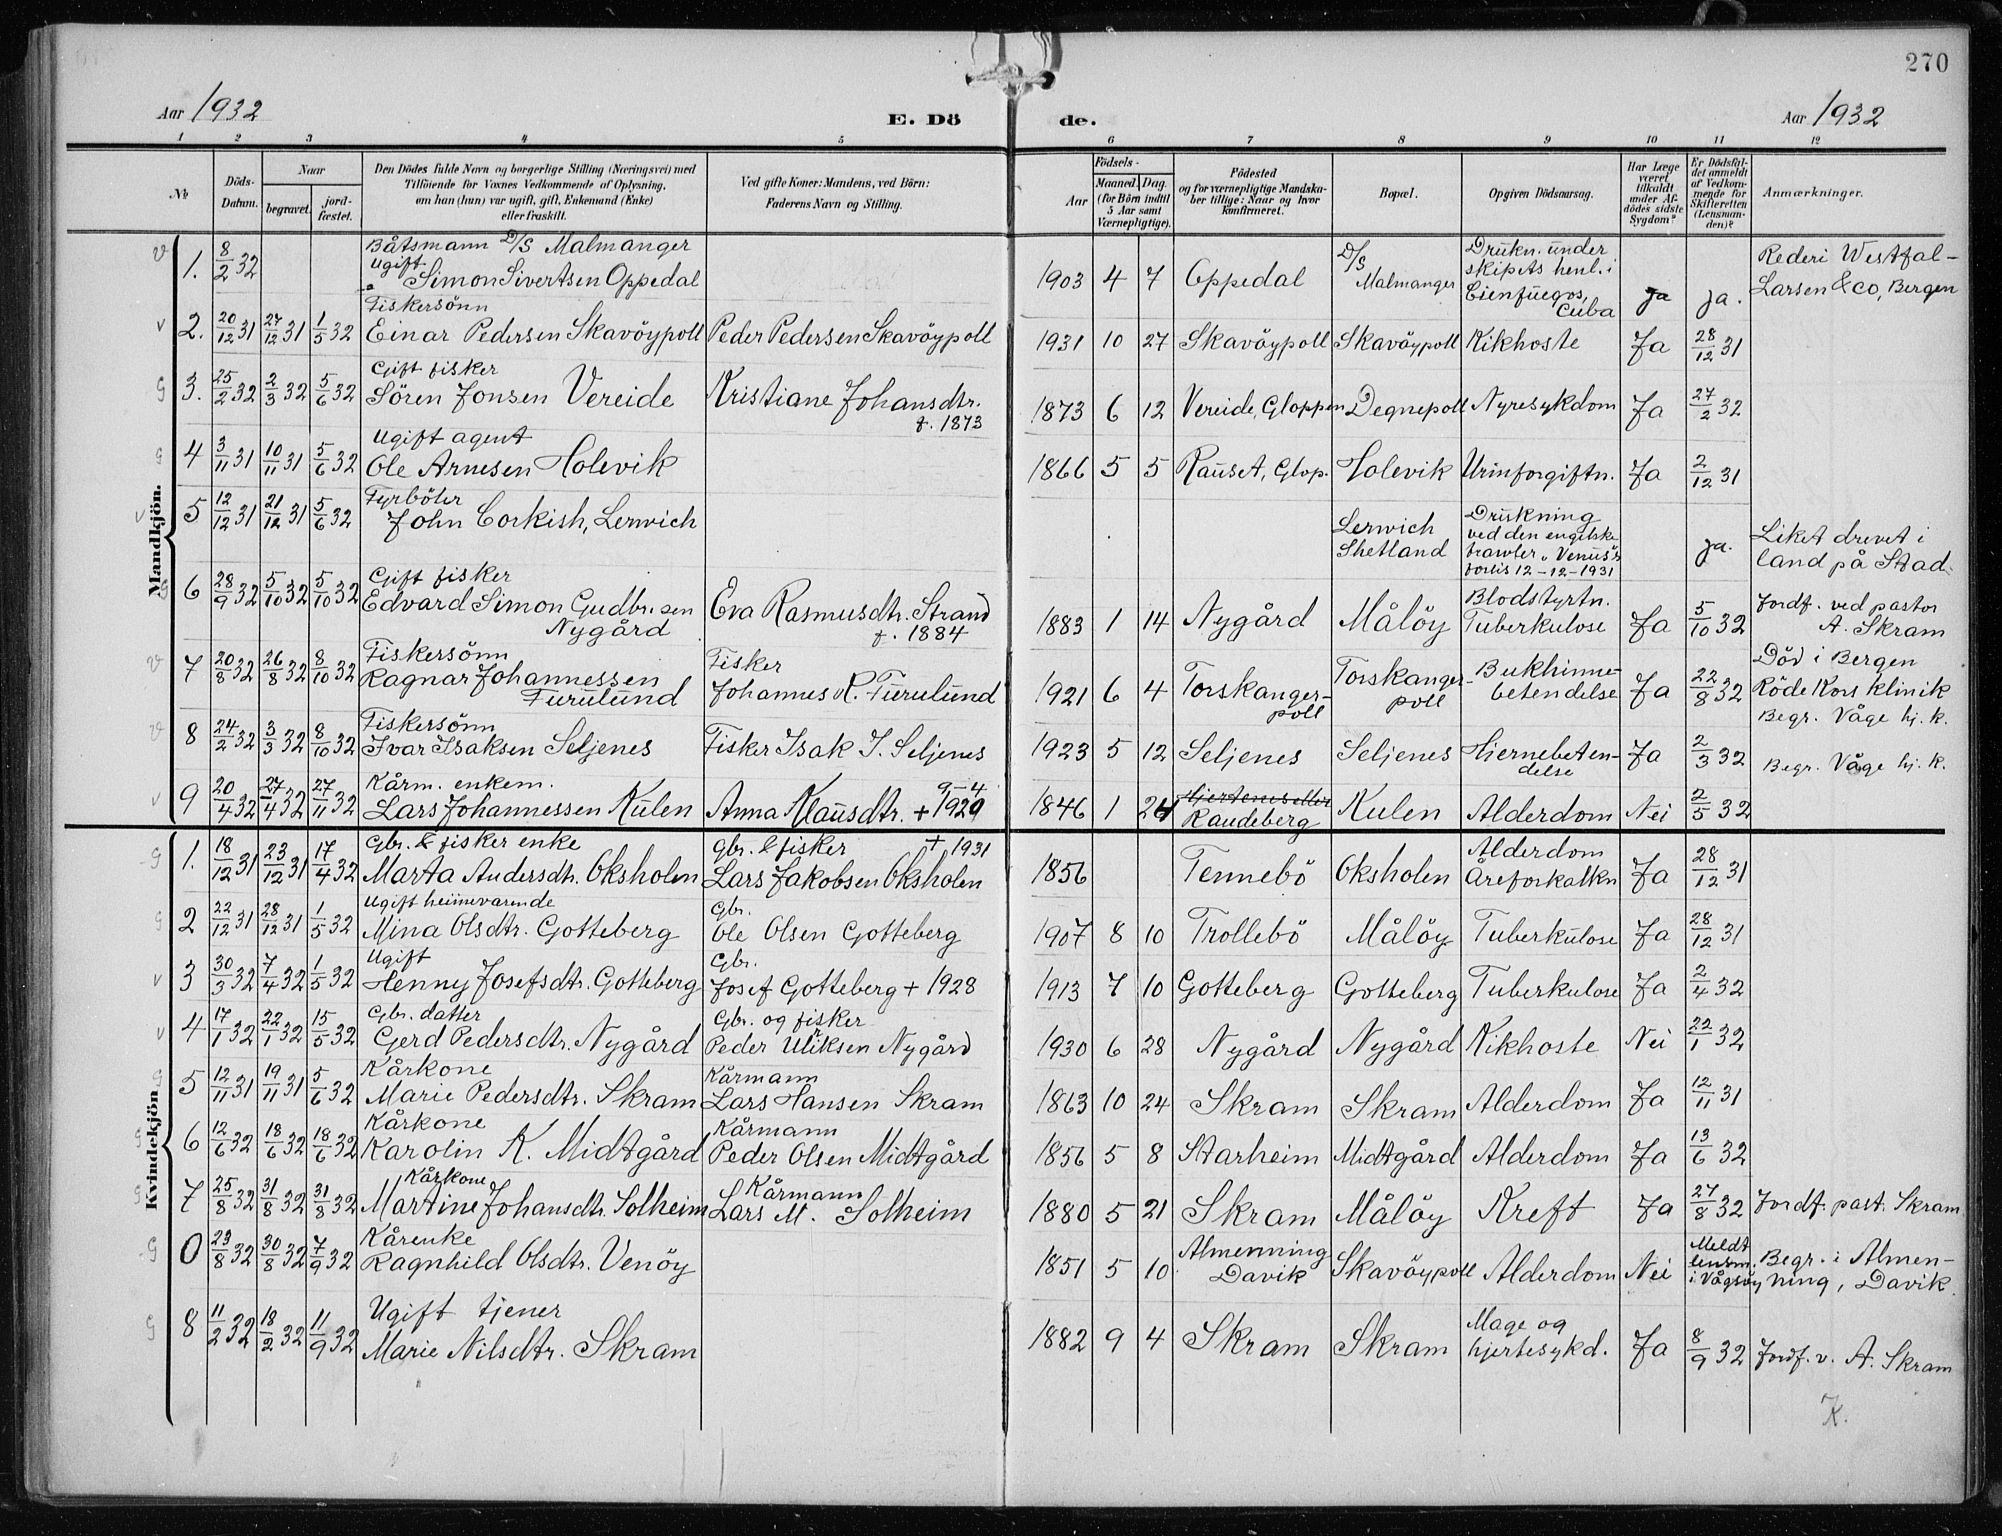 270
Aar 1932
E. Dö de.
Aar 1932
1 2 3 4 5 6 7 8 9 10 11 12
№
Döds-Datum.
Naar
begravet.
jord-fæstet.
Den Dödes fulde Navn og borgerlige Stilling (Næringsvei) med
Tilföiende for Voxnes Vedkommende af Oplysning,
om han (hun) var ugift, gift, Enkemand (Enke)
eller fraskilt.
Ved gifte Koner: Mandens, ved Börn:
Faderens Navn og Stilling.
Födsels-
Aar
Maaned. Dag.
(for Börn indtil
5 Aar samt
Værnepligtige).
Födested
og for værnepligtige Mandska-
ber tillige: Naar og hvor
konfirmeret.
Bopæl.
Opgiven Dödsaarsag.
Har Læge
været
tilkaldt
under Af-
dödes sidste
Sygdom?
Er Dödsfal-
det anmeldt
af Vedkom-
mende for
Skifteretten
(Lensman-
den)?
Anmærkninger.
Mandkjön.
v 1. 8/2 32 Båtsmann D/S Malmanger
Ugift
Simon Sivertsen Oppedal
1903 4 7 Oppedal D/S Malmanger
Drukn. under
skipets henl. i
Cienfuegos,
Cuba
Ja ja.
Rederi Westfal-
Larsen & co, Bergen
v 2. 20/12 31 27/12 31 1/5 32 Fiskersönn
Einar Pedersen Skavöypoll Peder Pedersen Skavöypoll
1931 10 27 Skavöypoll Skavöypoll Kikhoste Ja 28/12 31
G 3. 25/2 32 2/3 32 5/6 32 Gift fisker
Sören Jonsen Vereide Kristiane Johansdtr.
f. 1873
1873 6 12 Vereide, Gloppen Degnepoll Nyresykdom Ja 27/2 32
G 4 3/11 31 10/11 31 5/6 32 Ugift agent
Ole Arnesen Holevik
1866 5 5 Rauset, Glop. Holevik Urinforgiftn. Ja 2/12 31
v 5 12/12 31 21/12 31 5/6 32 Fyrböter
John Corkish, Lerwich
Lerwich
Shetland
Drukning
ved den engelske
trawler "Venus's
forlis 12-12-1931
ja.
Liket drevet i
land på Stad.
G 6 28/9 32 5/10 32 5/10 32 Gift fisker
Edvard Simon Gudbr.sen
Nygård
Eva Rasmusdtr. Strand
f. 1884
1883 1 14 Nygård Målöy Blodstyrtn.
Tuberkulose Ja 5/10 32
Jordf. ved pastor
A. Skram
v 7 20/8 32 26/8 32 8/10 32 Fiskersönn
Ragnar Johannessen
Furulund
Fisker
Johannes R. Furulund
1921 6 4 Torskanger-
poll
Torskanger-
poll
Bukhinne-
betendelse Ja 22/8 32
Död i Bergen
Röde Kors klinik
Begr. Våge hj. k.
v 8 24/2 32 3/3 32 8/10 32 Fiskersönn
Ivar Isaksen Seljenes Fisker Isak J. Seljenes
1923 5 12 Seljenes Seljenes Hjernebeten-
delse Ja 2/3 32
Begr. Våge hj. k.
v 9 20/4 32 27/4 32 27/11 32 Kårm. enkem.
Lars Johannessen Kulen Anna Klausdtr. + 9-4 1929
1846 1 24 Hjertenes eller
Raudeberg Kulen Alderdom Nei 2/5 32
Kvindekjön
G 1. 18/12 31 23/12 31 17/4 32 Gbr. & fisker enke
Marta Andersdtr. Oksholen
gbr. & fisker + 1931
Lars Jakobsen Oksholen
1856 Tennebö Oksholen Alderdom
Åreforkalkn Ja 28/12 31
G 2 22/12 31 28/12 31 1/5 32 Ugift heimevarende
Mina Olsdtr. Gotteberg
Gbr.
Ole Olsen Gotteberg
1907 8 10 Trollebö Målöy Tuberkulose Ja 28/12 31
v 3 30/3 32 7/4 32 1/5 32 Ugift
Henny Josefsdtr. Gotteberg
Gbr.
Josef Gotteberg + 1928
1913 7 10 Gotteberg Gotteberg Tuberkulose Ja 2/4 32
v 4 17/1 32 22/1 32 15/5 32 Gbr. datter
Gerd Pedersdtr. Nygård
Gbr. og fisker
Peder Ulriksen Nygård
1930 6 28 Nygård Nygård Kikhoste Nei 22/1 32
G 5 12/11 31 19/11 31 5/6 32 Kårkone
Marie Pedersdtr. Skram
Kårmann
Lars Hansen Skram
1863 10 24 Skram Skram Alderdom Ja 12/11 31
G 6 12/6 32 18/6 32 18/6 32 Kårkone
Karolin K. Midtgård
Kårmann
Peder Olsen Midtgård
1856 5 8 Starheim Midtgård Alderdom Ja 13/6 32
G 7 25/8 32 31/8 32 31/8 32 Kårkone
Martine Johansdtr. Solheim
Kårmann
Lars M. Solheim
1880 5 21 Skram Målöy Kreft Ja 27/8 32 Jordf. past. Skram
G 0 23/8 32 30/8 32 7/9 32 Kårenke
Ragnhild Olsdtr. Venöy
1851 5 10 Almenning
Davik Skavöypoll Alderdom Nei Meldt
lensm.
i Vågsöy
Begr. i Almen-
ning, Davik.
G 8 11/2 32 18/2 32 11/9 32 Ugift tjener
Marie Nilsdtr. Skram
1882 9 4 Skram Skram Mage og
hjertesykd. Ja 8/9 32 Jordf. v. A. Skram
K.